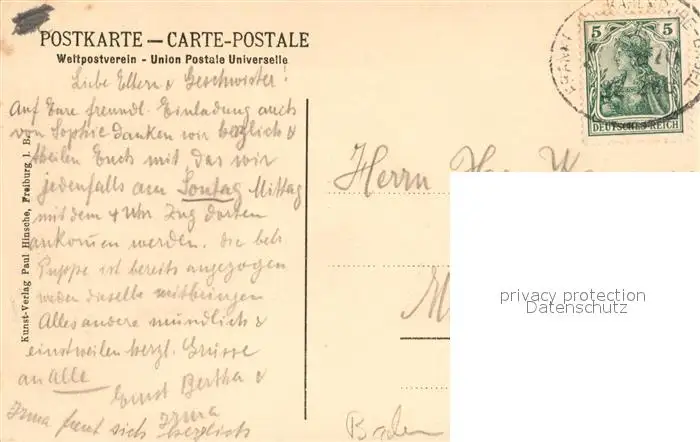 POSTKARTE — CARTE-POSTALE
Weltpostverein - Union Postale Universelle
Liebe Eltern & Geschwister!
Auf Eure freundl. Einladung auch
von Sophie danken wir herzlich &
theilen Euch mit das wir
jedenfalls am Sontag Mittag
mit dem 4 Uhr Zug dorten
ankommen werden. die
Puppe ist bereits angezogen
werden daselbe mitbringen
Alles andere mündlich &
einstweilen herzl. Grüsse
an Alle
Ernst Bertha &
Irma
Irma freut sich herzlich
Kunst-Verlag Paul Hinsche, Freiburg i. B.
5 5
DEUTSCHES REICH
Herrn
Baden
privacy protection
Datenschutz